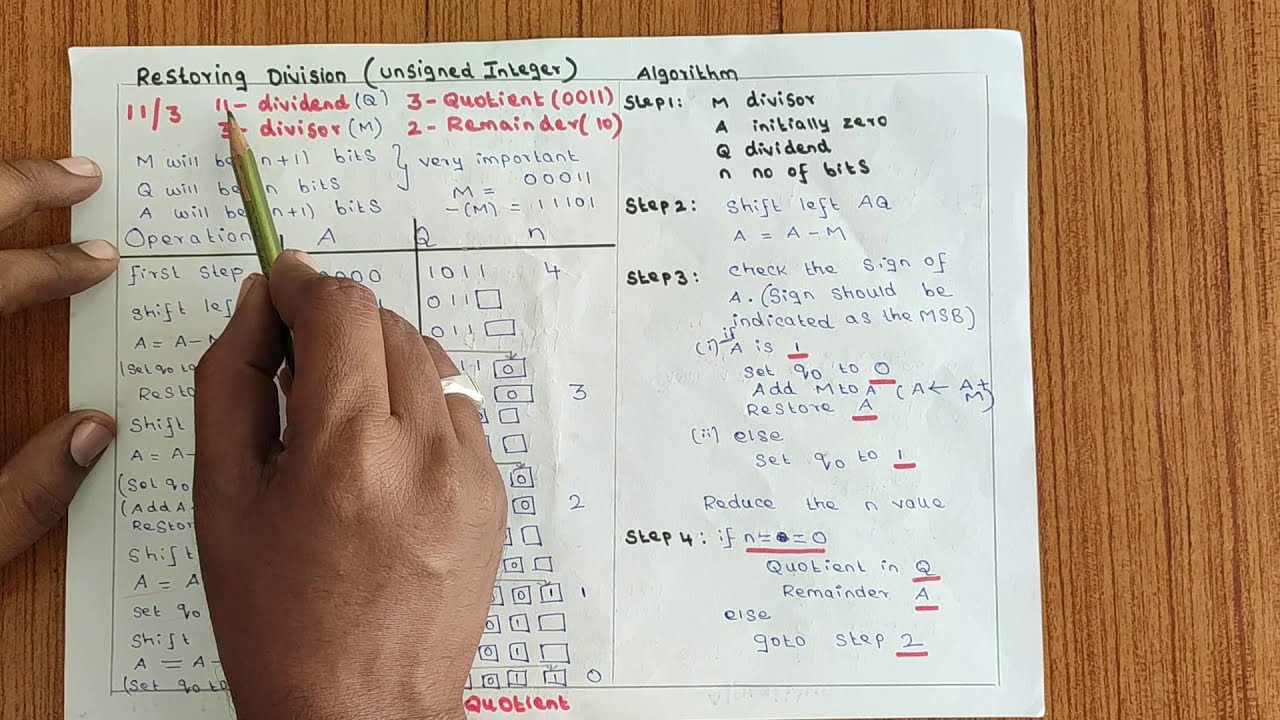 Restoring Division (Unsigned Integer)
11/3 11 - dividend (Q) 3 - Quotient (0011)
3 - divisor (M) 2 - Remainder (10)
M will be (n+1) bits } very important
Q will be n bits M = 00011
A will be (n+1) bits -(M) = 11101
Operation A Q n
first step 0000 1011 4
Shift left 011
A = A - M 011
(Set q0 to 11 0
0 3
Shift
A = A-
(Set q0 0
(Add A 0 2
Shift
A = A 0
Set q0 0 1 1
Shift 0 1
A = A- 0 1
(Set q0 to 0 1 1 0
Quotient
Algorithm
Step1: M divisor
A initially zero
Q dividend
n no of bits
Step2: Shift left AQ
A = A - M
Step3: check the sign of
A. (Sign should be
indicated as the MSB)
(i) if A is 1
Set q0 to 0
Add M to A (A ← A + M)
Restore A
(ii) else
Set q0 to 1
Reduce the n value
Step4: if n == 0
Quotient in Q
Remainder A
else
goto step 2